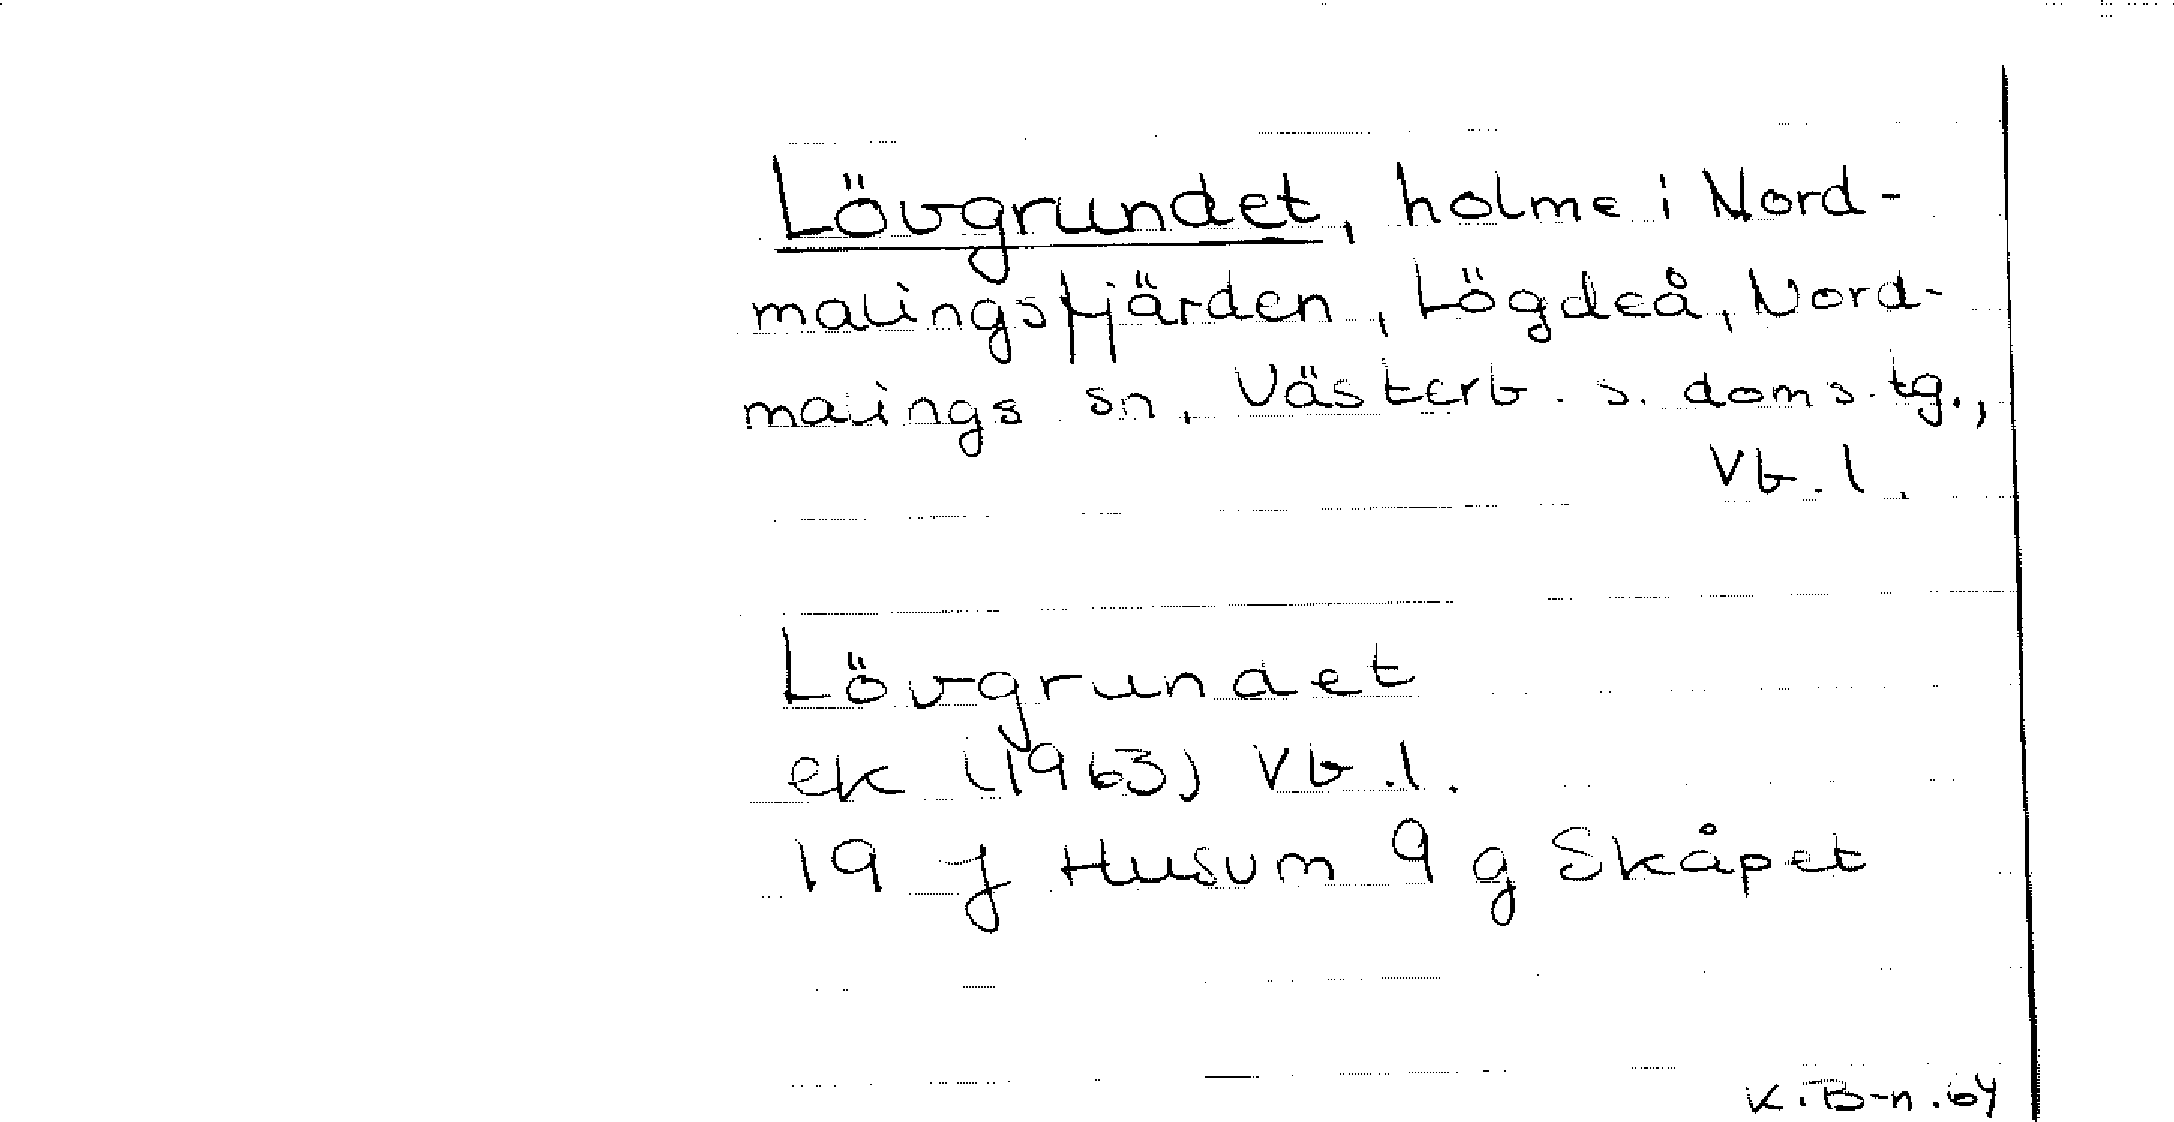 Lövgrundet, holme i Nord-
malingsfjärden, Lögdeå, Nord-
malings sn, Västerb. s. doms. tg.,
Vb. l.
Lövgrundet
ek (1963) Vb. l.
19 J Husum 9 g Skåpet
K. B-n. 64